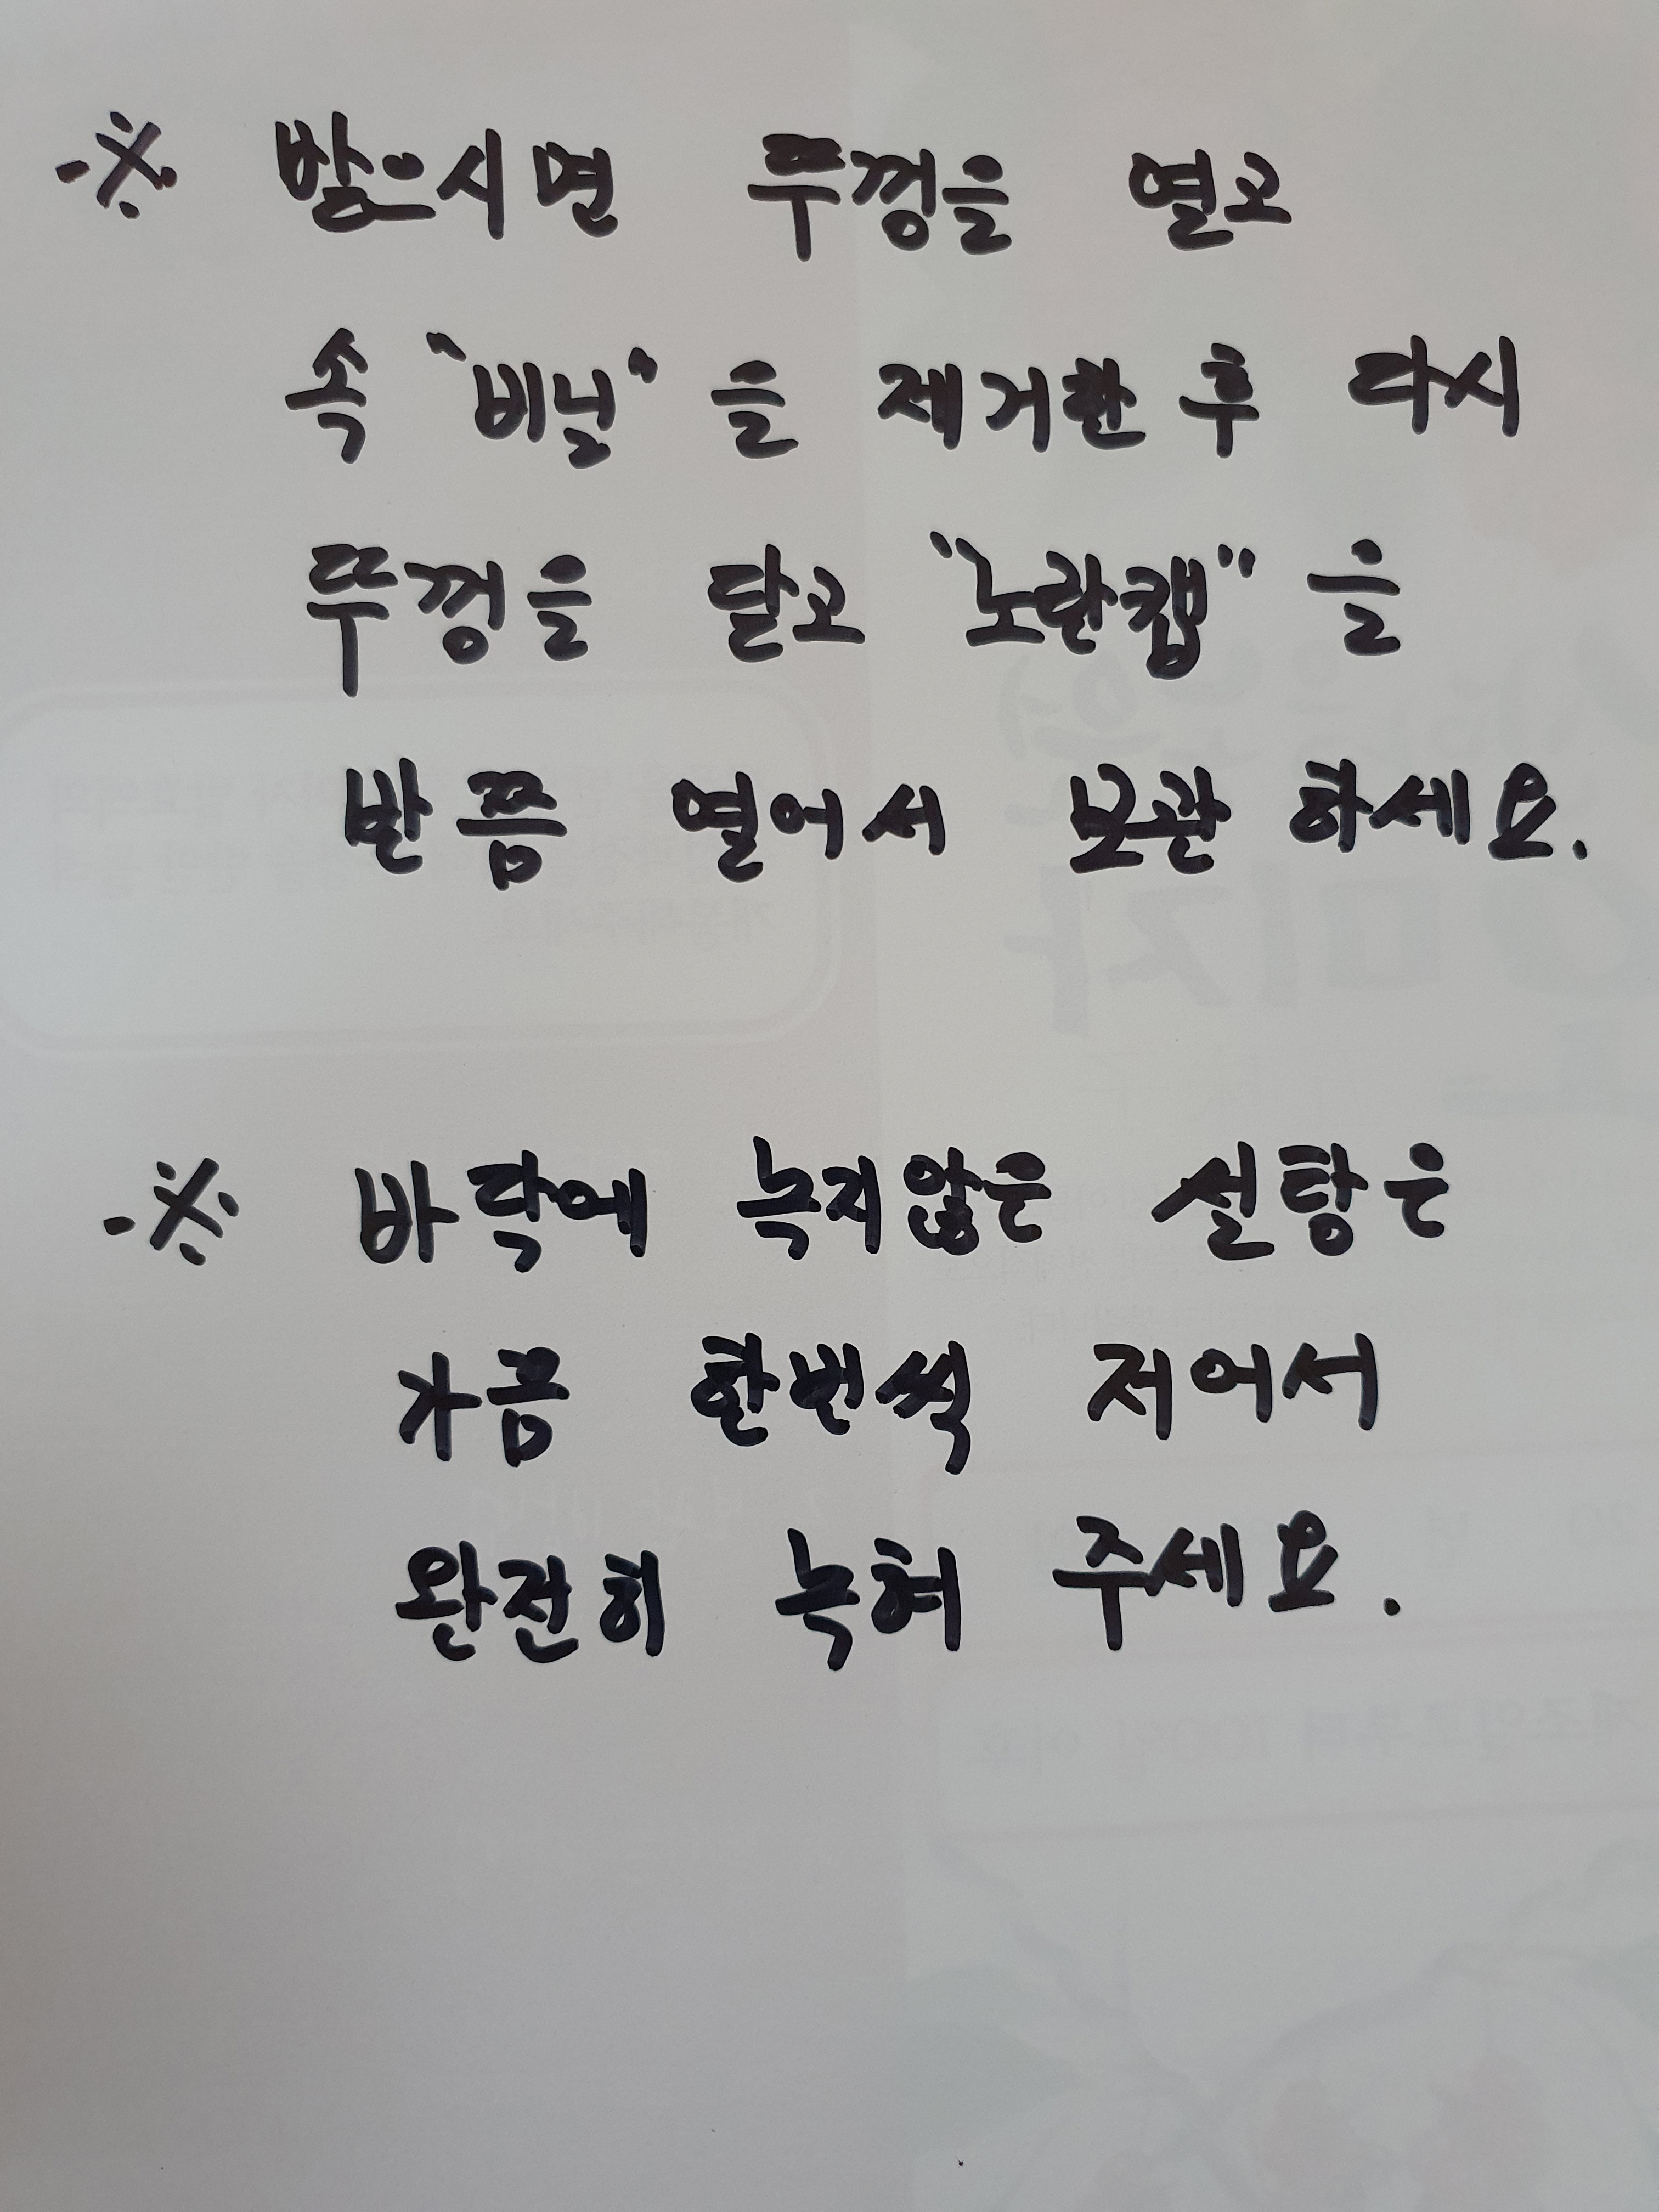 ※ 받으시면 뚜껑을 열고
속 "비닐"을 제거한 후 다시
뚜껑을 닫고 "노란캡"을
반쯤 열어서 보관하세요.
※ 바닥에 녹지않은 설탕은
가끔 한번씩 저어서
완전히 녹혀 주세요.